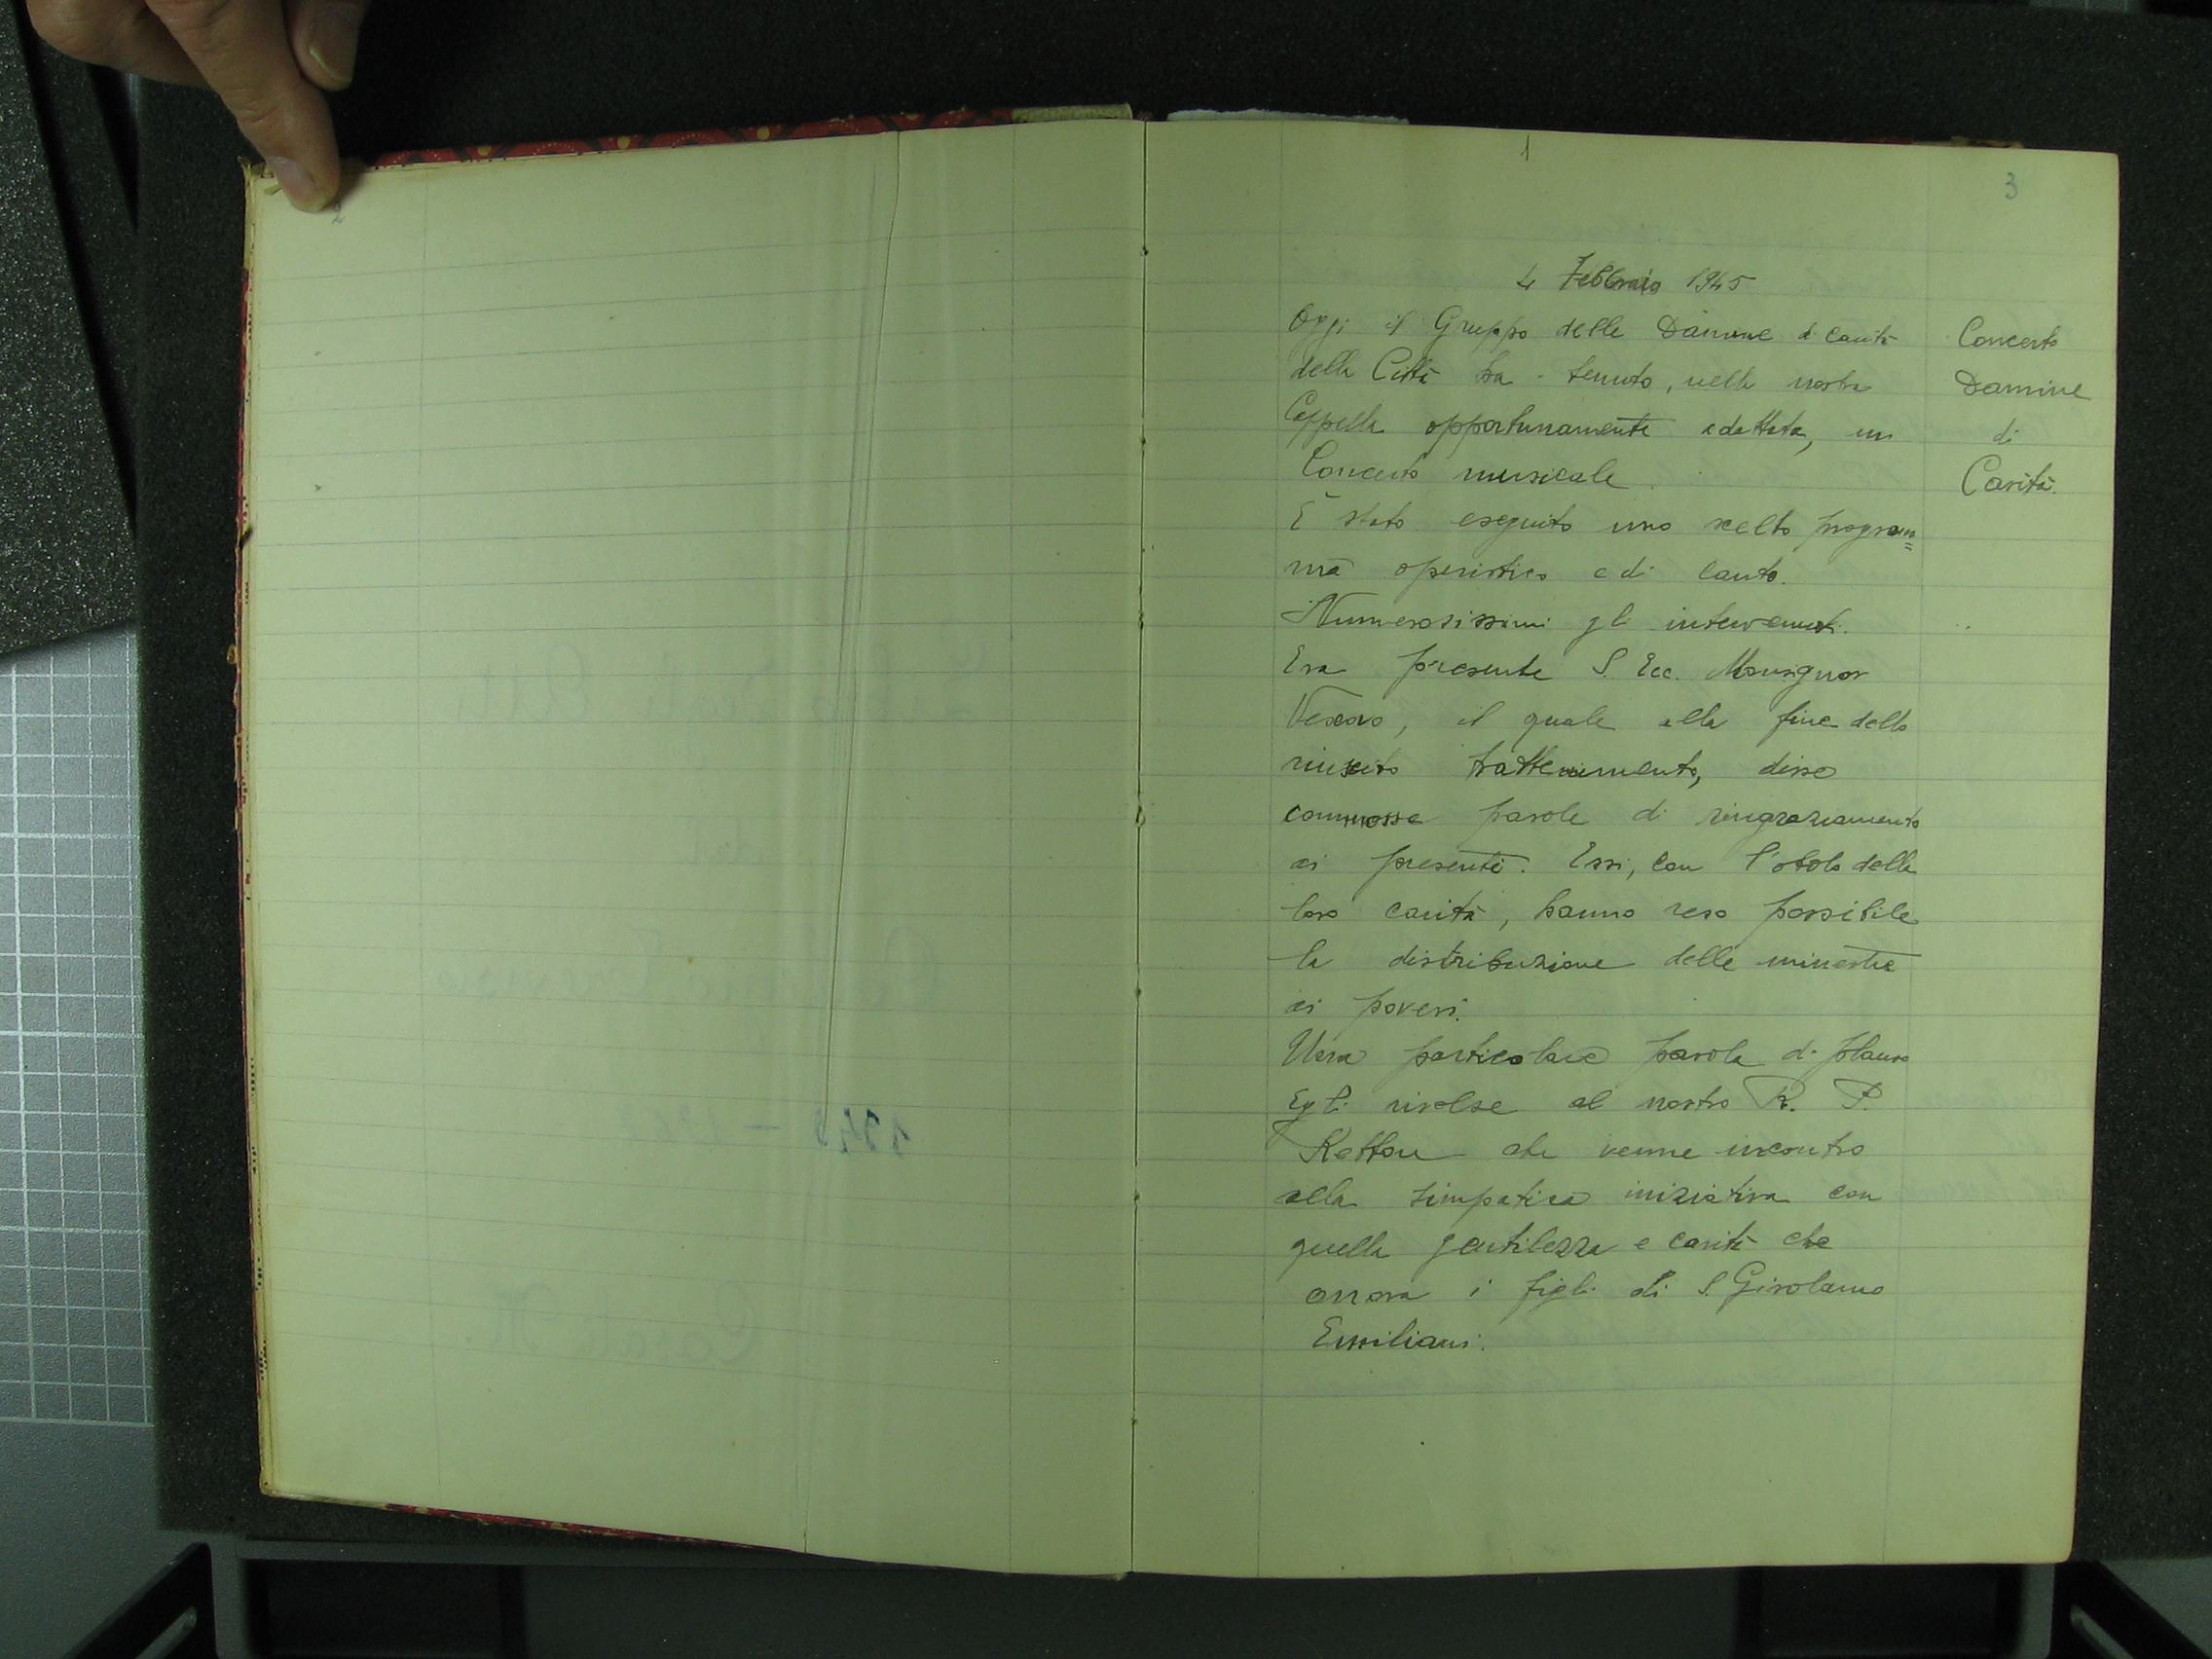 2
1
3
4 Febbraio 1945
Oggi il Gruppo delle Damine di carità
della Città ha tenuto, nella nostra
Cappella opportunamente adattata, un
Concerto musicale.
È stato eseguito uno scelto program=
ma operistico e di canto.
Numerosissimi gli intervenuti.
Era presente S. Ecc. Monsignor
Vescovo, il quale alla fine dello
riuscito trattenimento, disse
commosse parole di ringraziamento
ai presenti. Essi, con l'obolo della
loro carità, hanno reso possibile
la distribuzione delle minestre
ai poveri.
Una particolare parola di plauso
Egli rivolse al nostro R. P.
Rettore che venne incontro
alla simpatica iniziativa con
quella gentilezza e carità che
onora i figli di S. Girolamo
Emiliani.
Concerto
Damine
di
Carità.